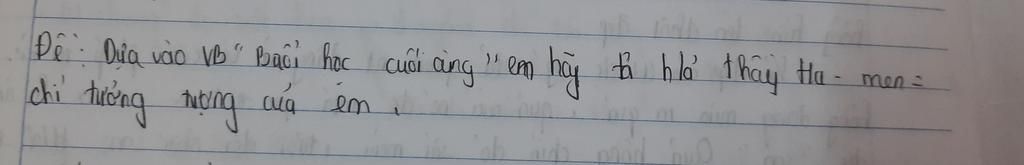 Đề: Dựa vào VB "Buổi học cuối cùng" em hãy tả lại thầy Ha-men =
chí tưởng tượng của em.